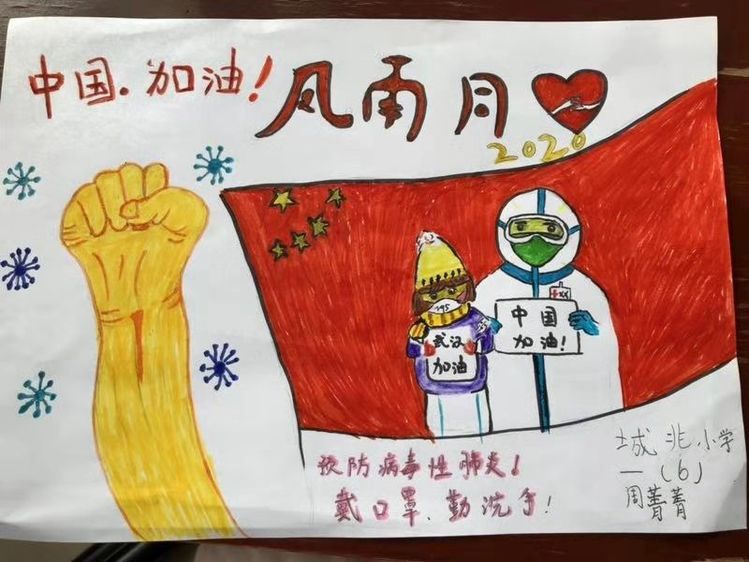 中国.加油!
风雨月
2020
武汉
加油
中国
加油!
预防病毒性肺炎!
戴口罩.勤洗手!
城北小学
一(6)
周菁菁